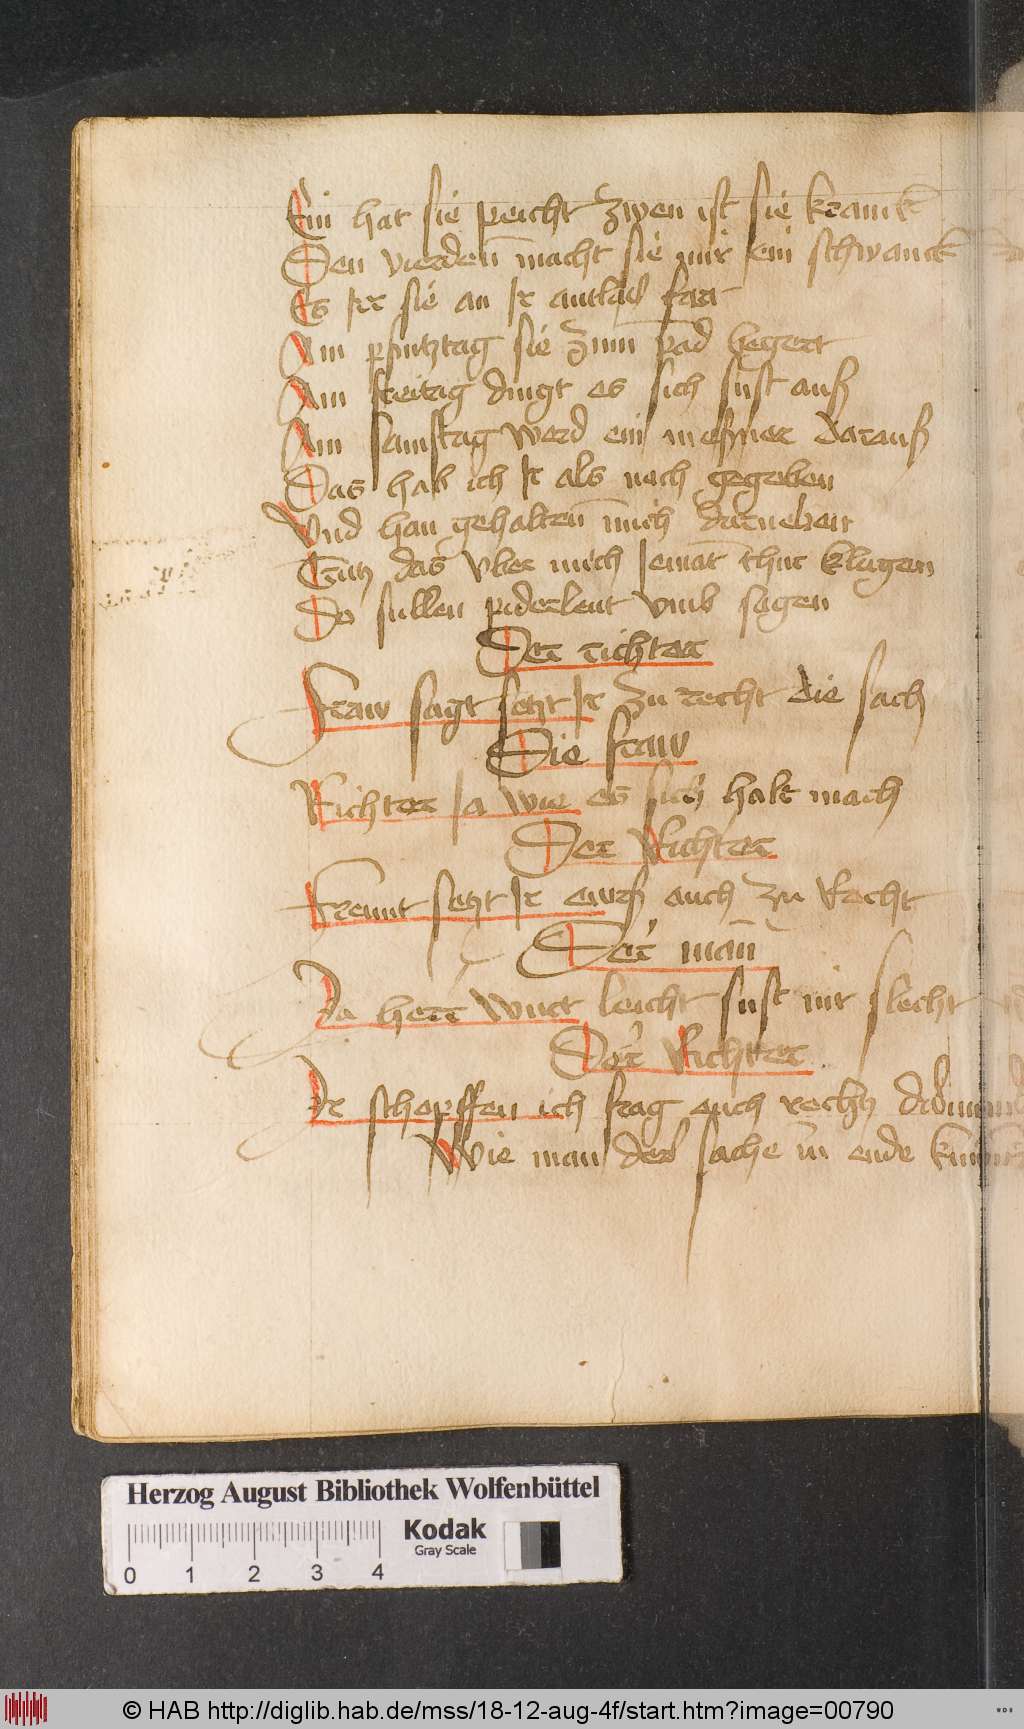 Ein hat sie peicht zwen ist sie kranck
Den vierden macht sie mir ein schwanck
Es irr sie an ir antlas fart
Am pfintztag sie zum pad begert
Am freitag dingt es sich sust auß
Am samstag werd ein mesner darauß
Das hab ich ir als noch gegeben
Vnd han gehalten mich darneben
Trutz das vber mich iemat thut klagen
Do sullen piderleut vmb sagen
Der richter
Fraw sagt setzt ir zu recht die sach
Die fraw
Richter ja wie es sich halt mach
Der Richter
Freunt setzt ir ewrß auch zu Recht
Der man
Ja herr wurt leicht sust nit slecht
Der Richter
Ir schopffen ich frag euch
Wie man der sache in ende
Herzog August Bibliothek Wolfenbüttel
Kodak
Gray Scale
0 1 2 3 4
© HAB http://diglib.hab.de/mss/18-12-aug-4f/start.htm?image=00790